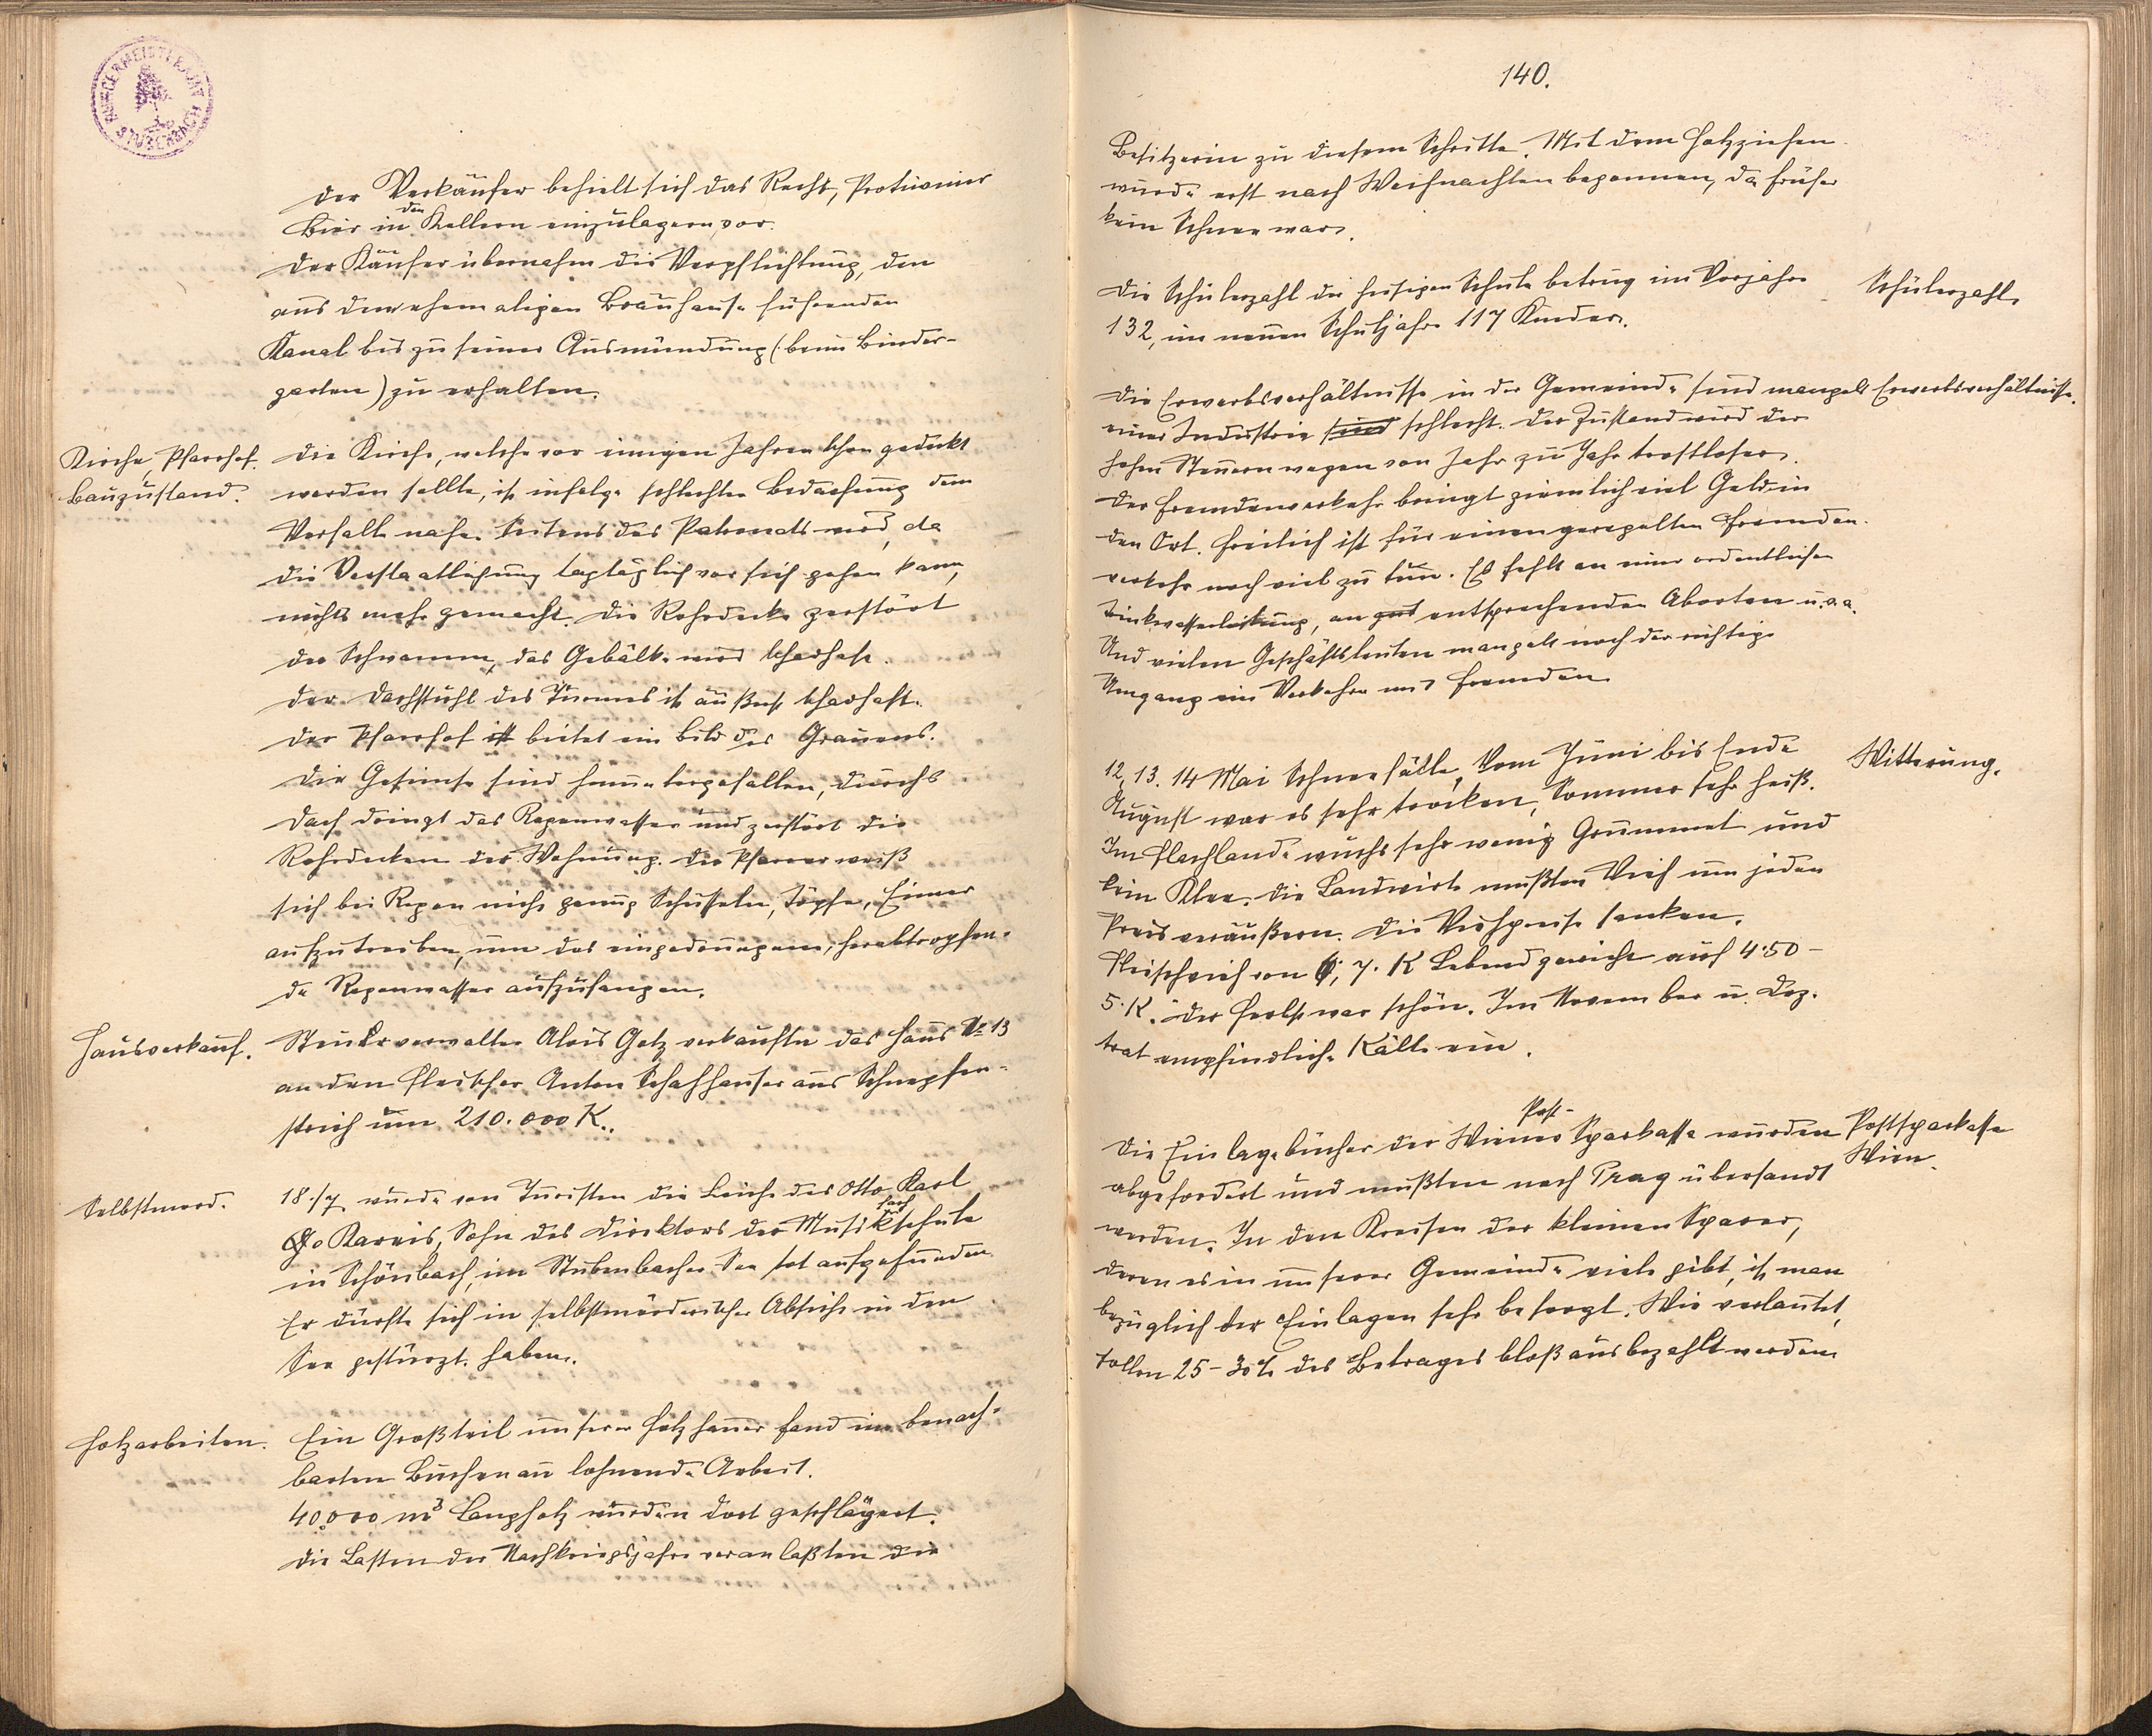 BÜRGERMEISTERAMT STUBENBACH
Der Verkäufer behielt sich das Recht, Protiwiner
Bier in den Kellern einzulagern, vor.
Der Käufer übernahm die Verpflichtung, den
aus dem ehemaligen Brauhause führenden
Kanal bis zu seiner Ausmündung (beim Binder-
garten) zu erhalten.
Kirche, Pfarrhof.
Bauzustand.
Die Kirche, welche vor einigen Jahren schon gedeckt
werden sollte, ist infolge schlechter Bedachung dem
Verfalle nahe. Seitens des Patronats wird, da
die Verstaatlichung tagtäglich vor sich gehen kann,
nichts mehr gemacht. Die Rohrdecke zerstört
der Schwamm, das Gebälke wird schadhaft.
Der Dachstuhl des Turmes ist äußerst schadhaft.
Der Pfarrhof ist bietet ein Bild des Grauens.
Die Gesimse sind heruntergefallen, durchs
Dach dringt das Regenwasser und zerstört die
Rohrdecken der Wohnung. Der Pfarrer weiß
sich bei Regen nicht genug Schüsseln, Töpfe, Eimer
aufzutreiben, um das eingedrungene, herabtropfen-
de Regenwasser aufzufangen.
Hausverkauf.
Steuerverwalter Alois Gotz verkaufte das Haus No 13
an den Fleischer Anton Schafhauser aus Schnepfen-
strich um 210.000 K.
Selbstmord.
18./7. wurde von Turisten die Leiche des Otto Karl
Go Karneis, Sohn des Direktors der Musikfachschule
in Schönbach, im Stubenbacher See tot aufgefunden.
Er dürfte sich in selbstmörderischer Absicht in den
See gestürzt haben.
Holzarbeiten.
Ein Großteil unserer Holzhauer fand im benach-
barten Buchenau lohnende Arbeit.
40.000 m3 Langholz wurden dort geschlägert.
Die Lasten der Nachkriegsjahre veranlaßten die
140.
Besitzerin zu diesem Schritte. Mit dem Holzziehen
wurde erst nach Weihnachten begonnen, da früher
kein Schnee war.
Die Schülerzahl der hiesigen Schule betrug im Vorjahre
132, im neuen Schuljahre 117 Kinder.
Schülerzahl.
Die Erwerbsverhältnisse in der Gemeinde sind mangels
Erwerbsverhältnisse.
einer Industrie sind schlecht. Der Zustand wird der
hohen Steuern wegen von Jahr zu Jahr trostloser.
Der Fremdenverkehr bringt ziemlich viel Geld in
den Ort. Freilich ist für einen geregelten Fremden-
verkehr noch viel zu tun. Es fehlt an einer ordentlichen
Trinkwasserleitung, an gut entsprechenden Aborten u.v.a.
Und vielen Geschäftsleuten mangelt noch der richtige
Umgang im Verkehre mit Fremden.
12. 13. 14 Mai Schneefälle. Vom Juni bis Ende
Witterung.
August war es sehr trocken, Sommer sehr heiß.
Im Flachlande wuchs sehr wenig Grummet und
kein Klee. Die Landwirte mußten Vieh um jeden
Preis veräußern. Die Viehpreise sanken.
Fleischvieh von 6, 7. K Lebendgewicht auf 4.50 -
5. K. Der Herbst war schön. Im November u. Dez.
trat empfindliche Kälte ein.
Die Einlagebücher der Wiener Post-Sparkasse wurden
Postsparkasse
Wien.
abgefordert und mußten nach Prag übersandt
werden. In den Kreisen der kleinen Sparer,
deren es in unserer Gemeinde viele gibt, ist man
bezüglich der Einlagen sehr besorgt. Wie verlautet,
sollen 25-30% des Betrages bloß ausbezahlt werden.